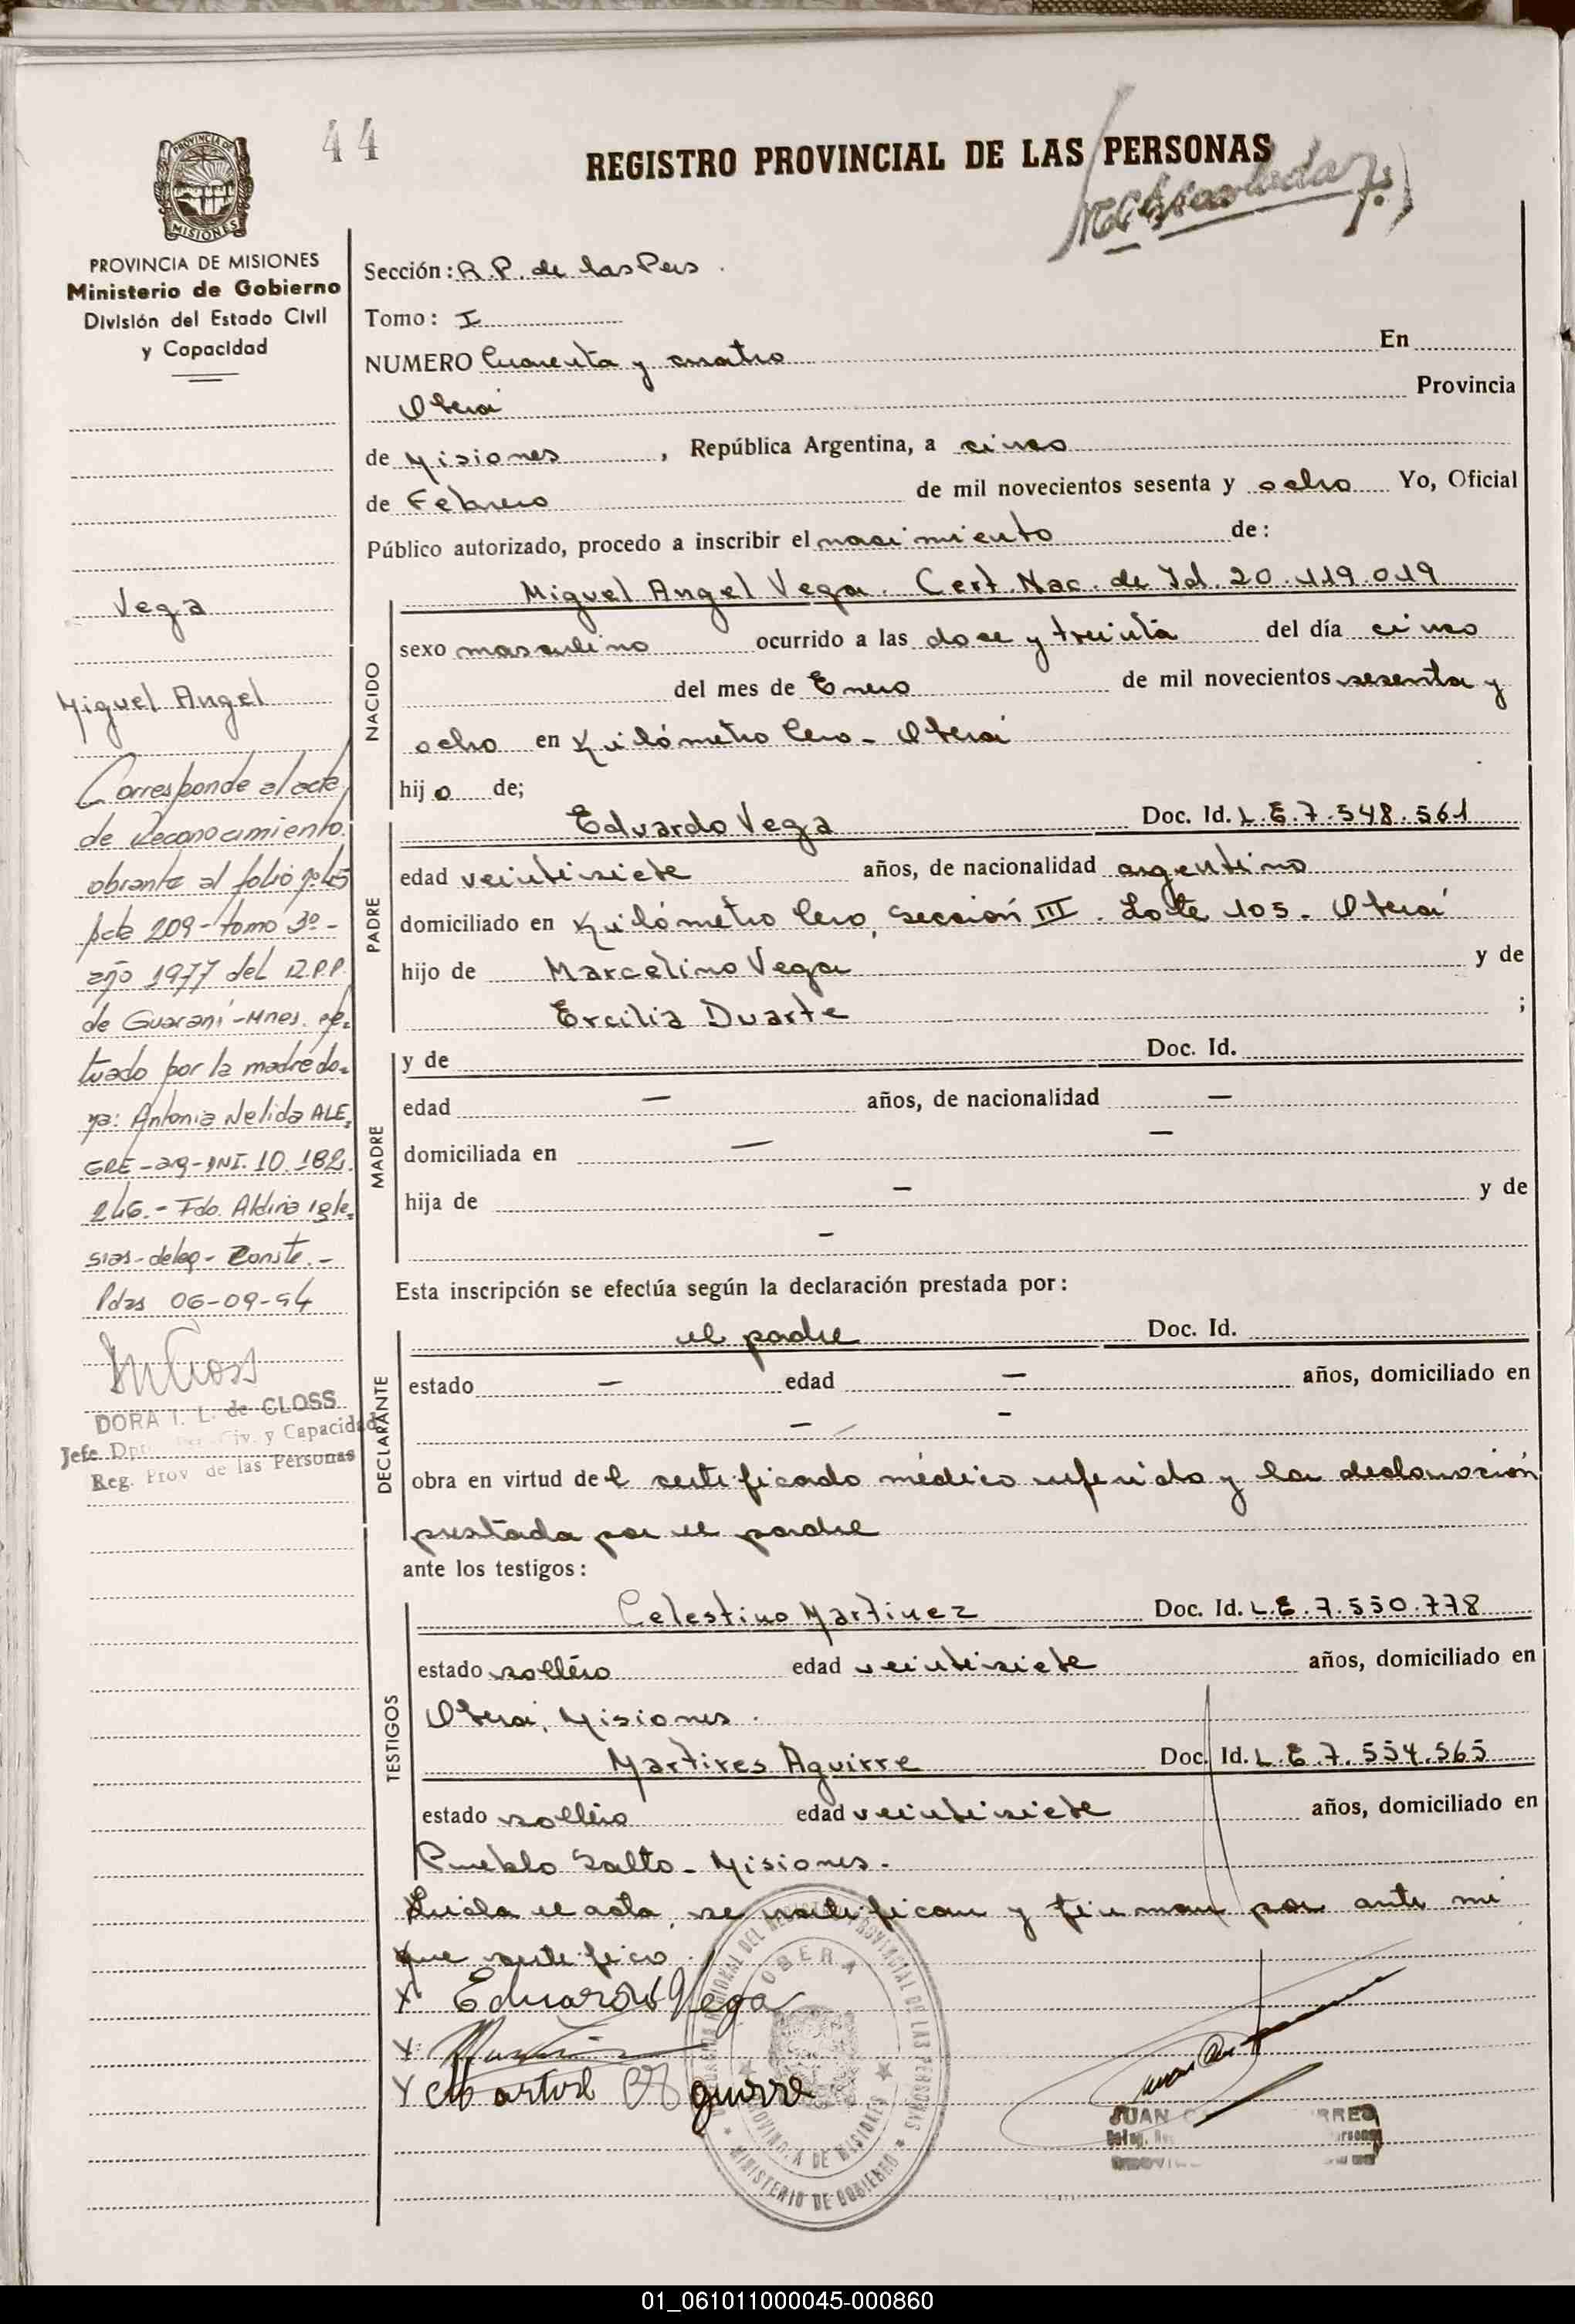 44
REGISTRO PROVINCIAL DE LAS PERSONAS
PROVINCIA DE MISIONES
MISIONES
PROVINCIA DE MISIONES
Ministerio de Gobierno
División del Estado Civil
y Capacidad
Sección: R.P. de las Pers.
Tomo: I
NUMERO Cuarenta y cuatro En
Oberá Provincia
de Misiones, República Argentina, a cinco
de Febrero de mil novecientos sesenta y ocho Yo, Oficial
Público autorizado, procedo a inscribir el nacimiento de:
Vega
Miguel Angel
Corresponde al acta
de Reconocimiento
obrante al folio nº 45
acta 209 - tomo 3º -
año 1977 del R.P.P.
de Guaraní - Mnes. efec
tuado por la madre do-
ña: Antonia Nelida ALE
GRE - arg - DNI. 10.182.
246. - Fdo. Aldina Igle
sias - deleg - Conste. -
Pdas 06-09-94
DORA I. L. de CLOSS
Jefe Dpto. Civ. y Capacidad
Reg. Prov de las Personas
NACIDO
Miguel Angel Vega. Cert. Nac. de Id. 20.119.019
sexo masculino ocurrido a las doce y treinta del día cinco
del mes de Enero de mil novecientos sesenta y
ocho en Kilómetro Cero - Oberá
hijo de;
PADRE
Eduardo Vega Doc. Id. L.E.7.548.561
edad veintisiete años, de nacionalidad argentino
domiciliado en Kilómetro Cero, Sección III. Lote 105. Oberá
hijo de Marcelino Vega y de
Ercilia Duarte ;
MADRE
y de Doc. Id.
edad — años, de nacionalidad —
domiciliada en — —
hija de — y de
—
Esta inscripción se efectúa según la declaración prestada por:
DECLARANTE
el padre Doc. Id.
estado — edad — años, domiciliado en
— —
obra en virtud del certificado médico referido y la declaración
prestada por el padre
ante los testigos:
TESTIGOS
Celestino Martinez Doc. Id. L.E.7.550.778
estado soltero edad veintisiete años, domiciliado en
Oberá, Misiones.
Martires Aguirre Doc. Id. L.E.7.554.565
estado soltero edad veintisiete años, domiciliado en
Pueblo Salto - Misiones.
Leída el acta, se ratifican y firman por ante mi
que certifico.
x Eduardo Vega
x
x Martires Aguirre
REGIONAL DEL REGISTRO PROVINCIAL DE LAS PERSONAS
OBERA
PROVINCIA DE MISIONES
MINISTERIO DE GOBIERNO
JUAN
01_061011000045-000860